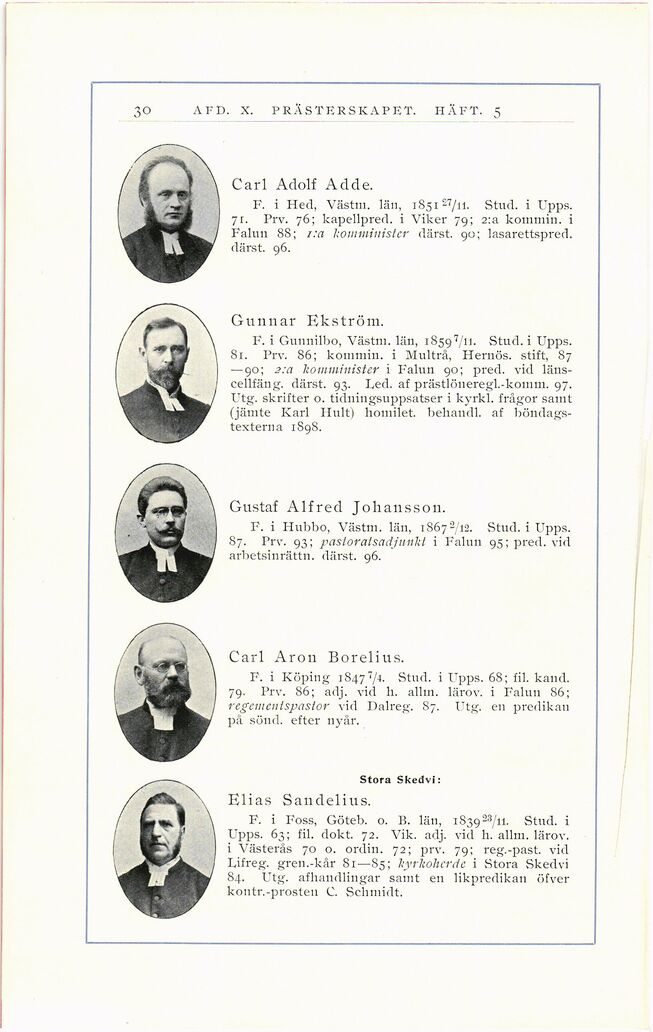 30 AFD. X. PRÄSTERSKAPET. HÄFT. 5
Carl Adolf Adde.
F. i Hed, Västm. län, 1851 27/11. Stud. i Upps.
71. Prv. 76; kapellpred. i Viker 79; 2:a kommin. i
Falun 88; 1:a komminister därst. 90; lasarettspred.
därst. 96.
Gunnar Ekström.
F. i Gunnilbo, Västm. län, 1859 7/11. Stud. i Upps.
81. Prv. 86; kommin. i Multrå, Hernös. stift, 87
—90; 2:a komminister i Falun 90; pred. vid läns-
cellfäng. därst. 93. Led. af prästlöneregl.-komm. 97.
Utg. skrifter o. tidningsuppsatser i kyrkl. frågor samt
(jämte Karl Hult) homilet. behandl. af böndags-
texterna 1898.
Gustaf Alfred Johansson.
F. i Hubbo, Västm. län, 1867 2/12. Stud. i Upps.
87. Prv. 93; pastoratsadjunkt i Falun 95; pred. vid
arbetsinrättn. därst. 96.
Carl Aron Borelius.
F. i Köping 1847 7/4. Stud. i Upps. 68; fil. kand.
79. Prv. 86; adj. vid h. allm. lärov. i Falun 86;
regementspastor vid Dalreg. 87. Utg. en predikan
på sönd. efter nyår.
Stora Skedvi:
Elias Sandelius.
F. i Foss, Göteb. o. B. län, 1839 23/11. Stud. i
Upps. 63; fil. dokt. 72. Vik. adj. vid h. allm. lärov.
i Västerås 70 o. ordin. 72; prv. 79; reg.-past. vid
Lifreg. gren.-kår 81—85; kyrkoherde i Stora Skedvi
84. Utg. afhandlingar samt en likpredikan öfver
kontr.-prosten C. Schmidt.